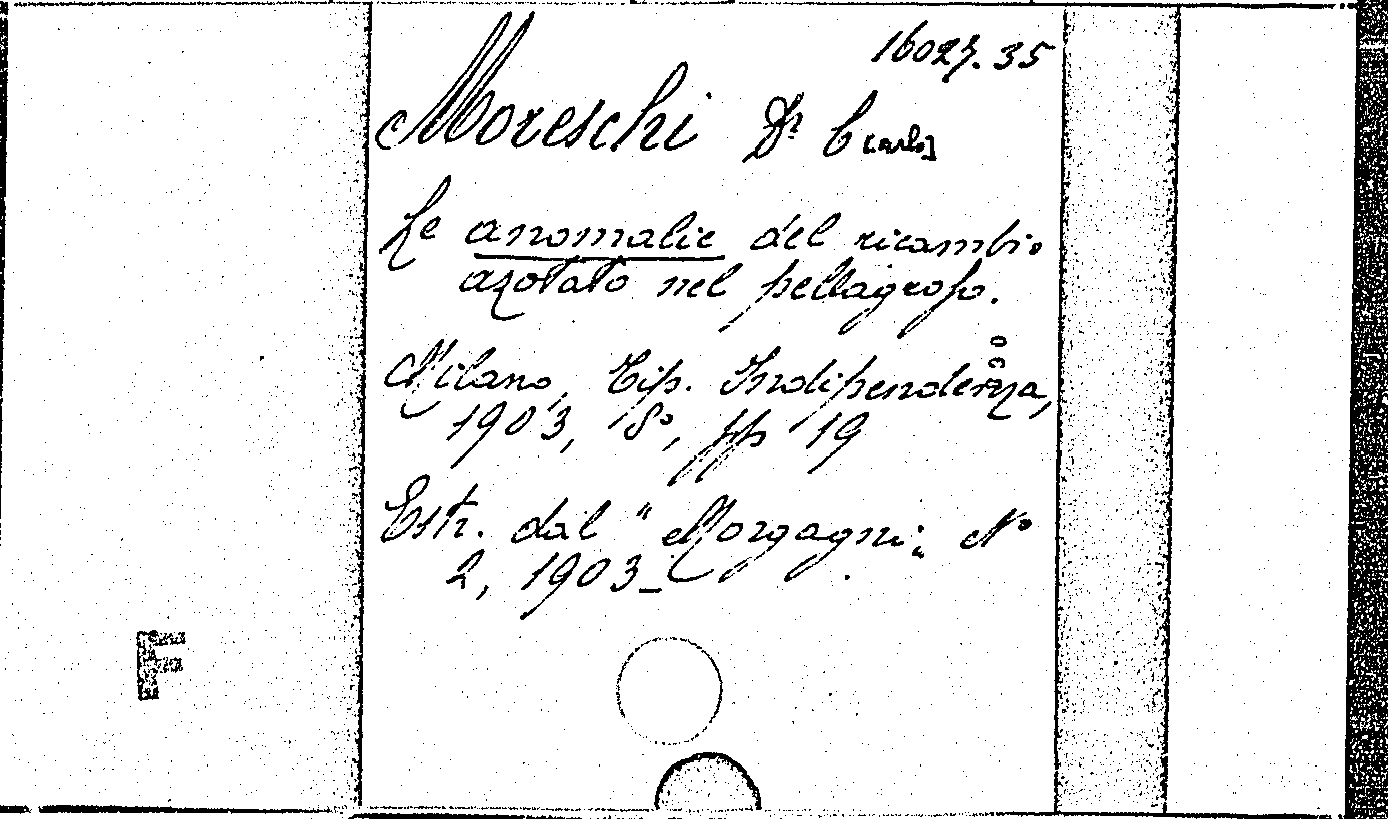 16027.35
Moreschi Dr C[arlo]
Le anomalie del ricambio
azotato nel pellagroso.
Milano, Tip. Indipendenza,
1903, 8°, pp 19
Estr. dal "Morgagni„ N°
2, 1903_
F